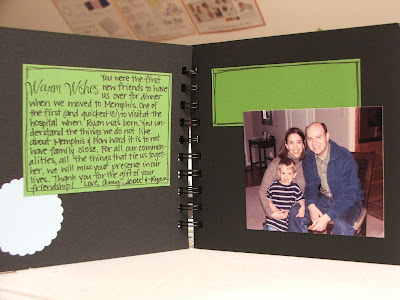 Warm Wishes You were the first
new friends to have
us over for dinner
when we moved to Memphis. One of
the first (and quickest ☺) to visit at the
hospital when Ryan was born. You un-
derstand the things we do not like
about Memphis & how hard it is to not
have family close. For all our common-
alities, all the things that tie us toget-
her, we will miss your presence in our
lives. Thank you for the gift of your
friendship! Love, Amy, & Ryan